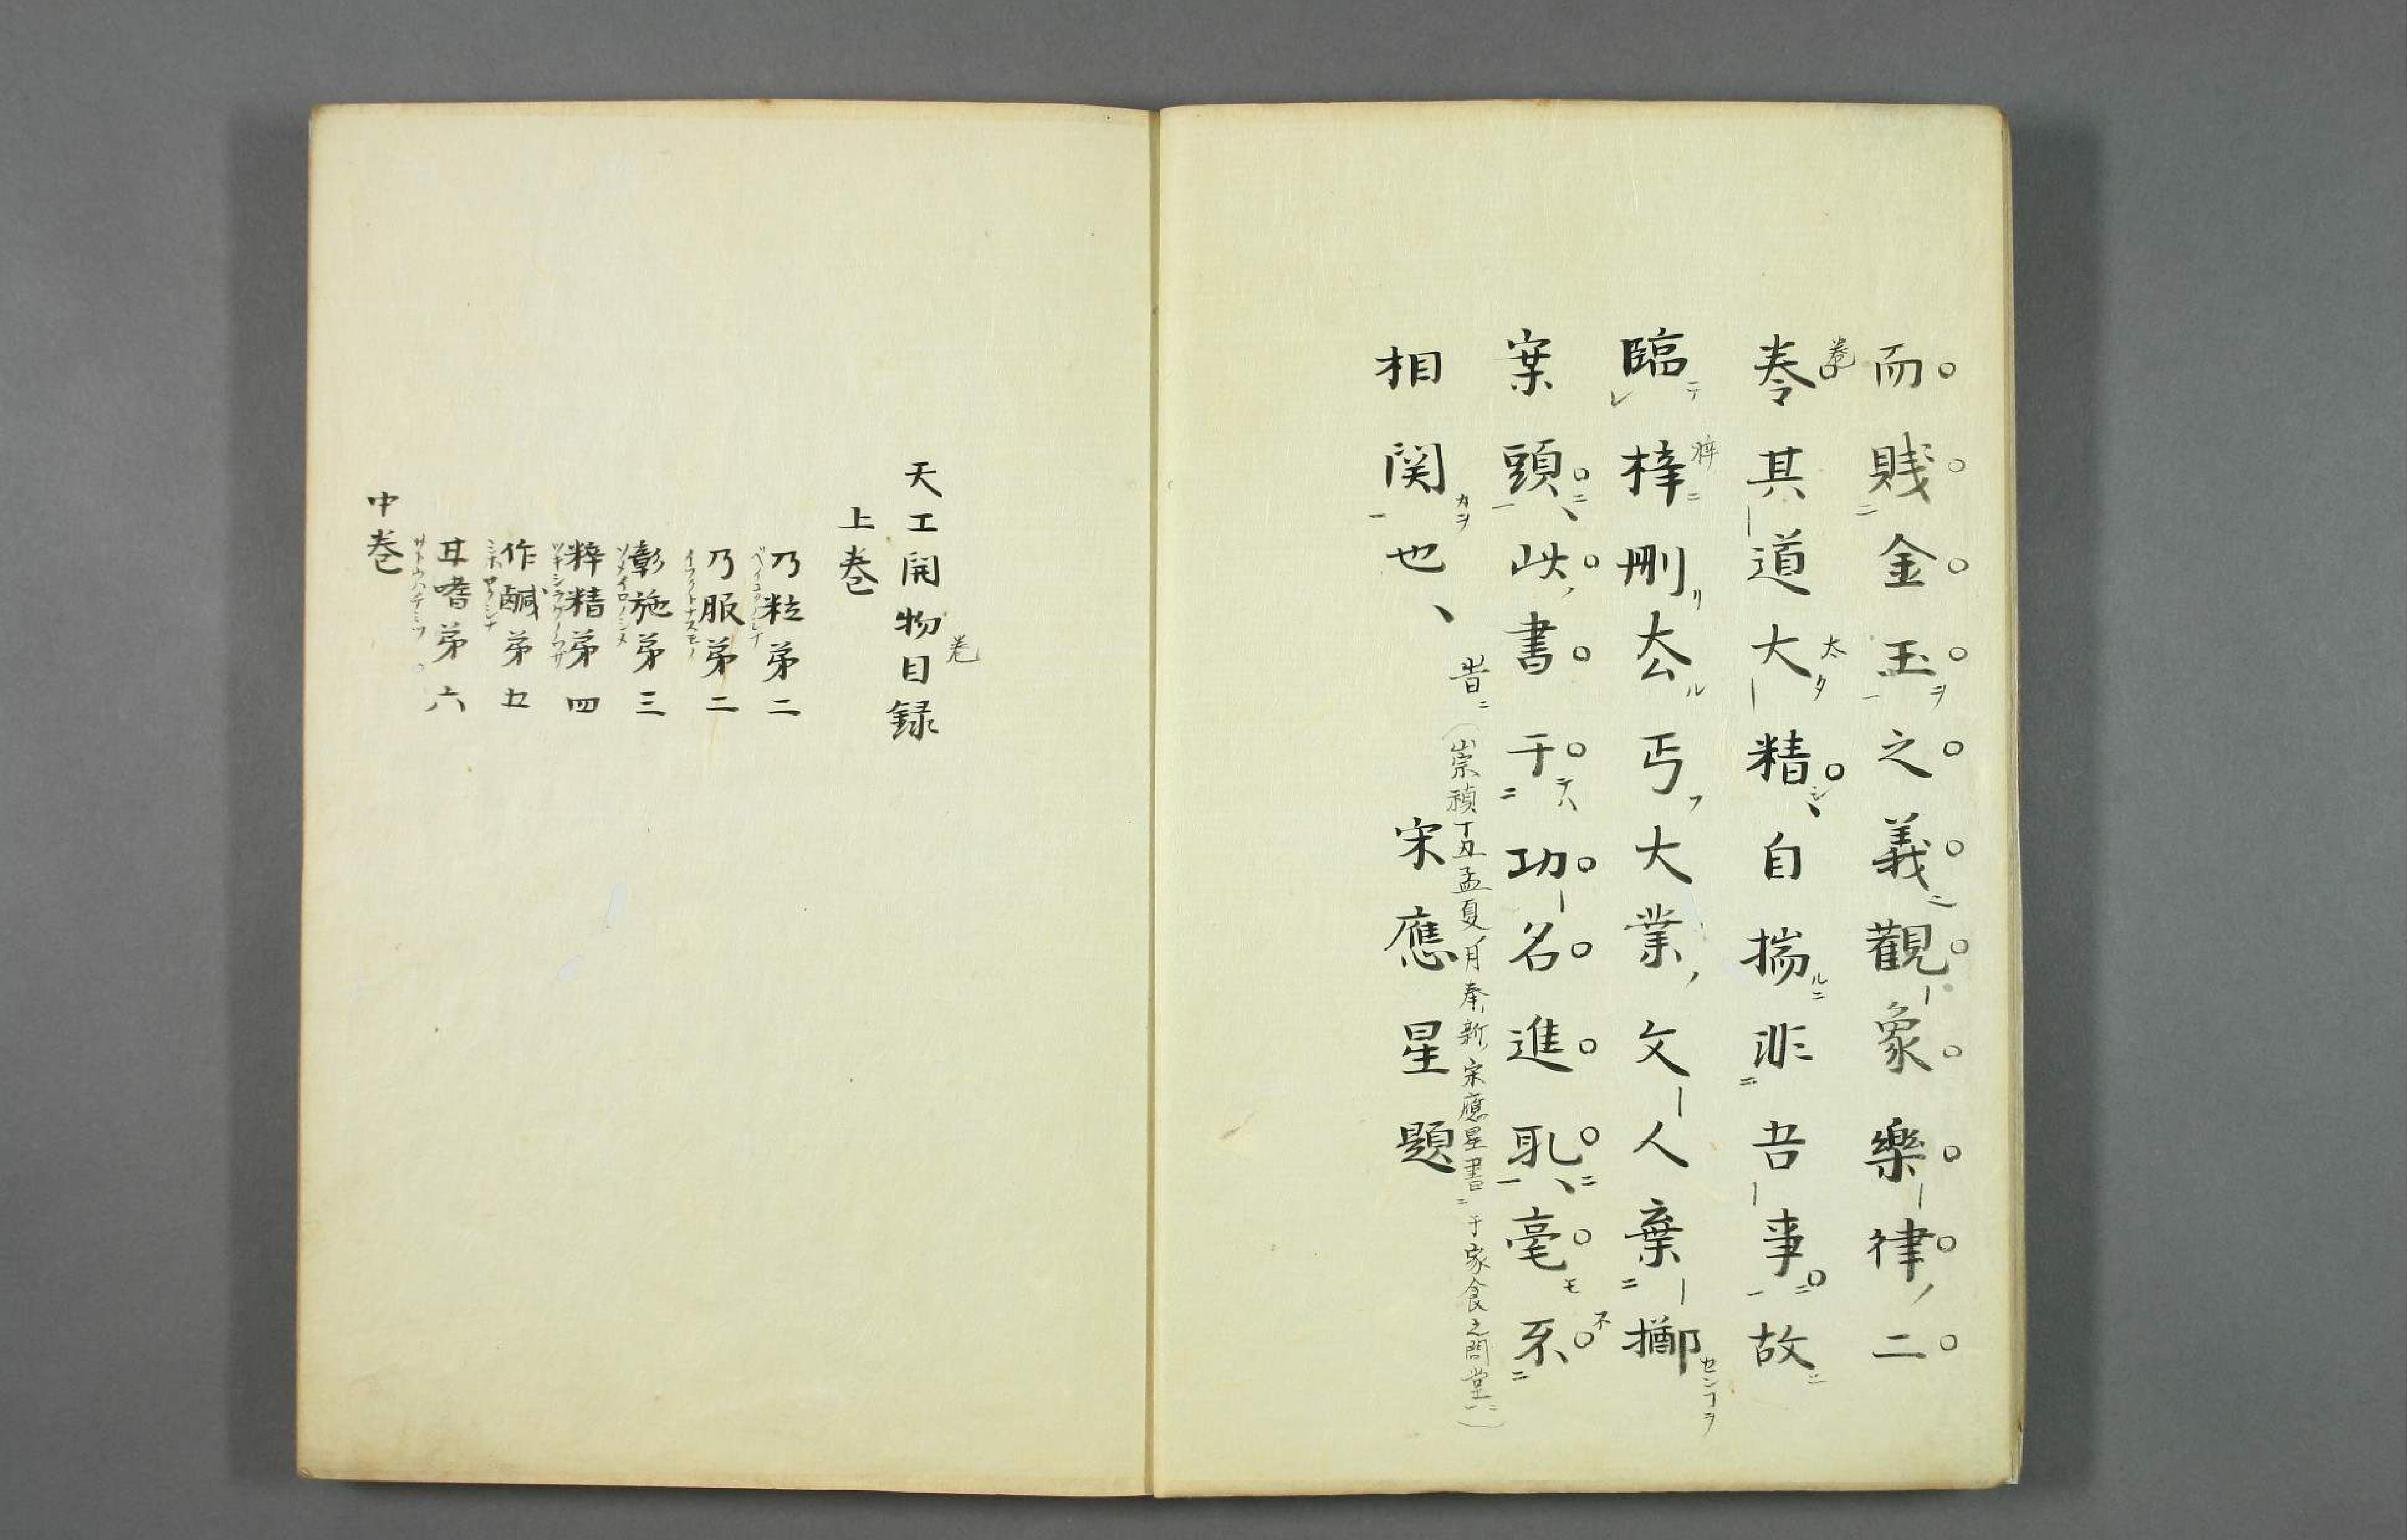 而賤金玉之義觀象樂律二
巻其道大精自揣非吾事故
臨梓刪去丐大業文人棄擲
案頭此書于功名進取毫不
相関也、
旹（崇禎丁丑孟夏月奉新宋應星書于家食之問堂）
宋應星題
天工開物目録
上巻
乃粒第二
乃服第二
彰施第三
粹精第四
作鹹第五
甘嗜第六
中巻